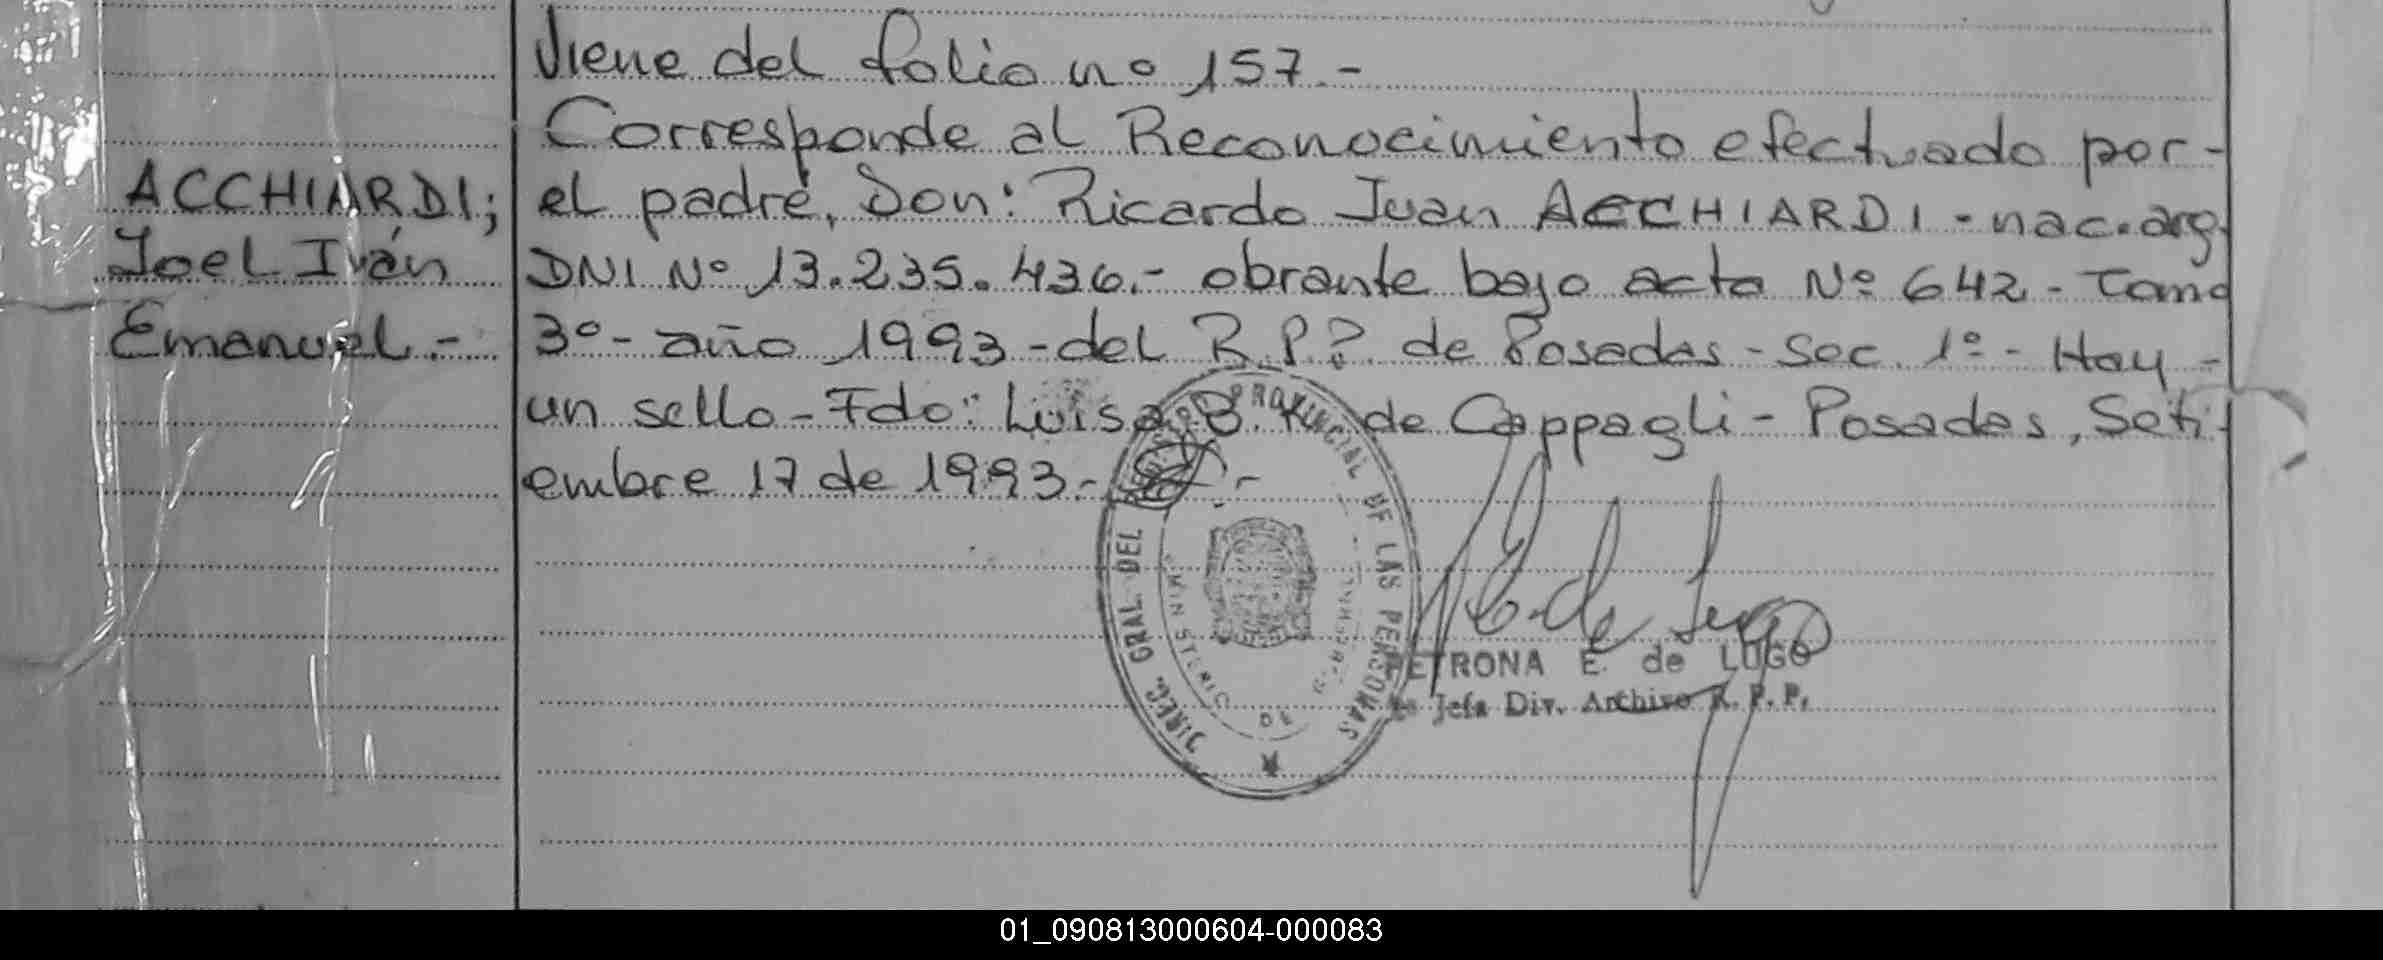 Viene del folio nº 157.-
Corresponde al Reconocimiento efectuado por-
ACCHIARDI; el padre, Don: Ricardo Juan ACCHIARDI - nac. arg.
Joel Iván DNI Nº 13.235.436.- obrante bajo acta Nº 642 - Tomo
Emanuel.- 3º- año 1993 - del R.P.P. de Posadas - Sec. 1º - Hay -
un sello - Fdo: Luisa B. K. de Cappagli - Posadas, Seti-
embre 17 de 1993.- .-
DIREC. GRAL. DEL PROVINCIAL DE LAS PERSONAS
MINISTERIO DE
PETRONA E. de LUGO
Jefa Div. Archivo R. P. P.
01_090813000604-000083